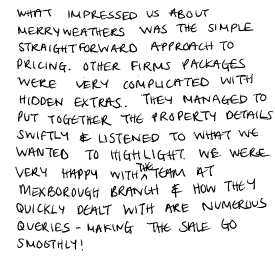 WHAT IMPRESSED US ABOUT
MERRYWEATHERS WAS THE SIMPLE
STRAIGHTFORWARD APPROACH TO
PRICING. OTHER FIRMS PACKAGES
WERE VERY COMPLICATED WITH
HIDDEN EXTRAS. THEY MANAGED TO
PUT TOGETHER THE PROPERTY DETAILS
SWIFTLY & LISTENED TO WHAT WE
WANTED TO HIGHLIGHT. WE WERE
VERY HAPPY WITH THE TEAM AT
MEXBOROUGH BRANCH & HOW THEY
QUICKLY DEALT WITH ARE NUMEROUS
QUERIES - MAKING THE SALE GO
SMOOTHLY!